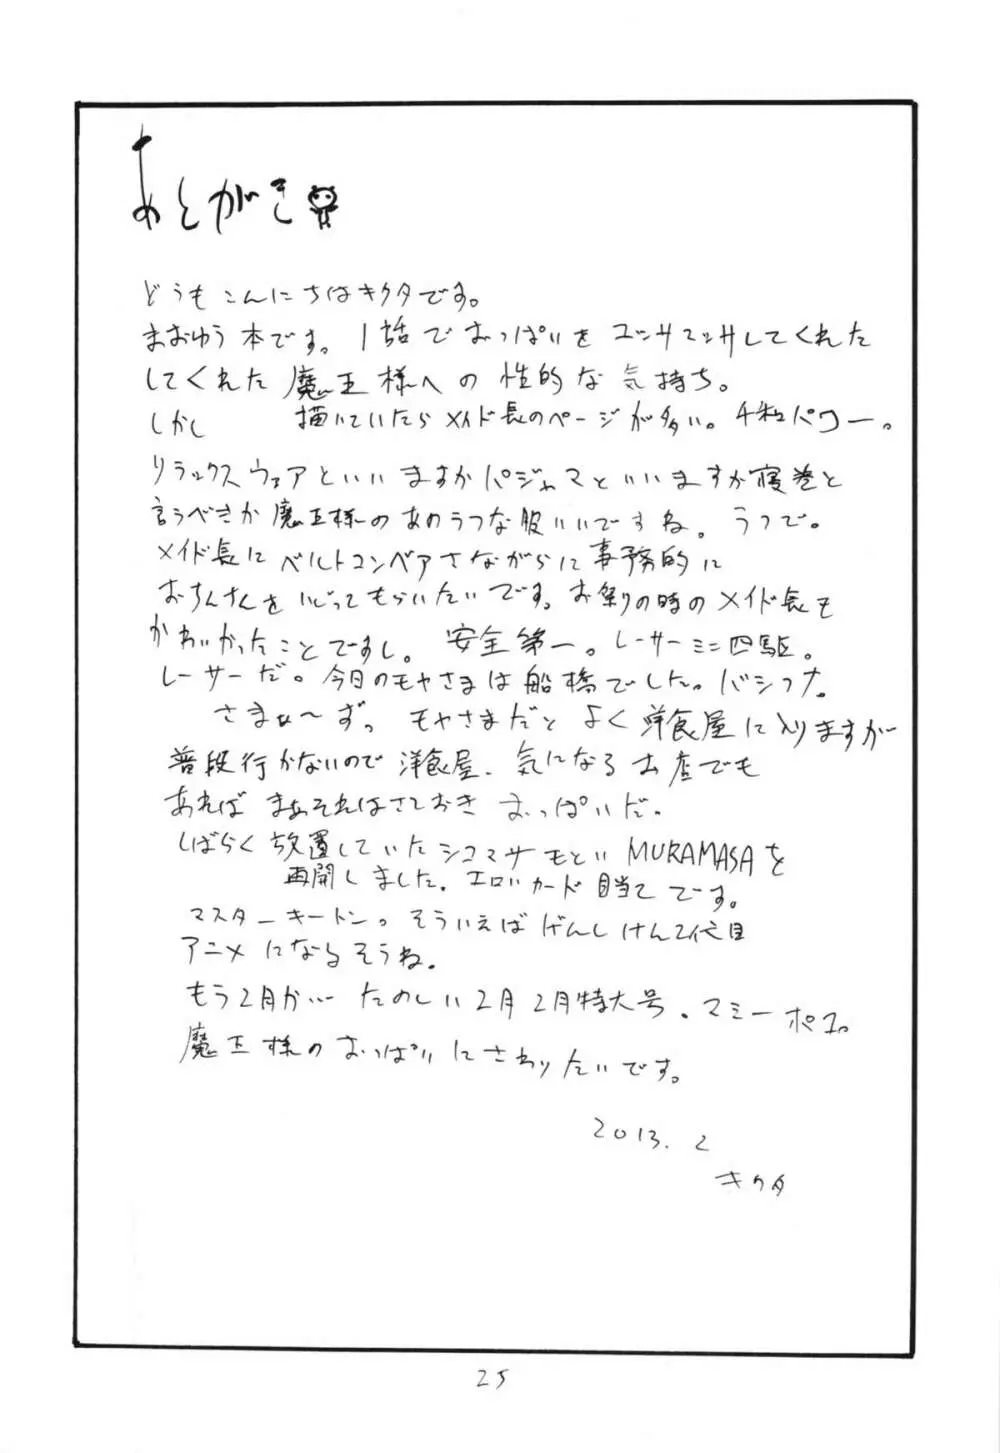 あとがき
どうもこんにちはキクタです。
まおゆう本です。1話でおっぱいをユッサユッサしてくれた
してくれた魔王様への性的な気持ち。
しかし 描いていたらメイド長のページが多い。千和パワー。
リラックスウェアといいますかパジャマといいますか寝巻と
言うべきか魔王様のあのうつな服いいですね。うつで。
メイド長にベルトコンベアさながらに事務的に
おちんちんをいじってもらいたいです。お祭りの時のメイド長も
かわいかったことですし。安全第一。レーサーミニ四駆。
レーサーだ。今日のモヤさまは船橋でした。バシフナ。
さまぁ〜ずっ モヤさまだと よく洋食屋に入りますが
普段行かないので洋食屋、気になるお店でも
あれば まあそれはさておき おっぱいだ。
しばらく放置していたシコマサもといMURAMASAを
再開しました。エロいカード目当てです。
マスターキートン。そういえばげんしけん2代目
アニメになるそうね。
もう2月か… たのしい2月2月特大号。マミーポコ。
魔王様のおっぱいにさわりたいです。
2013.2
キクタ
25